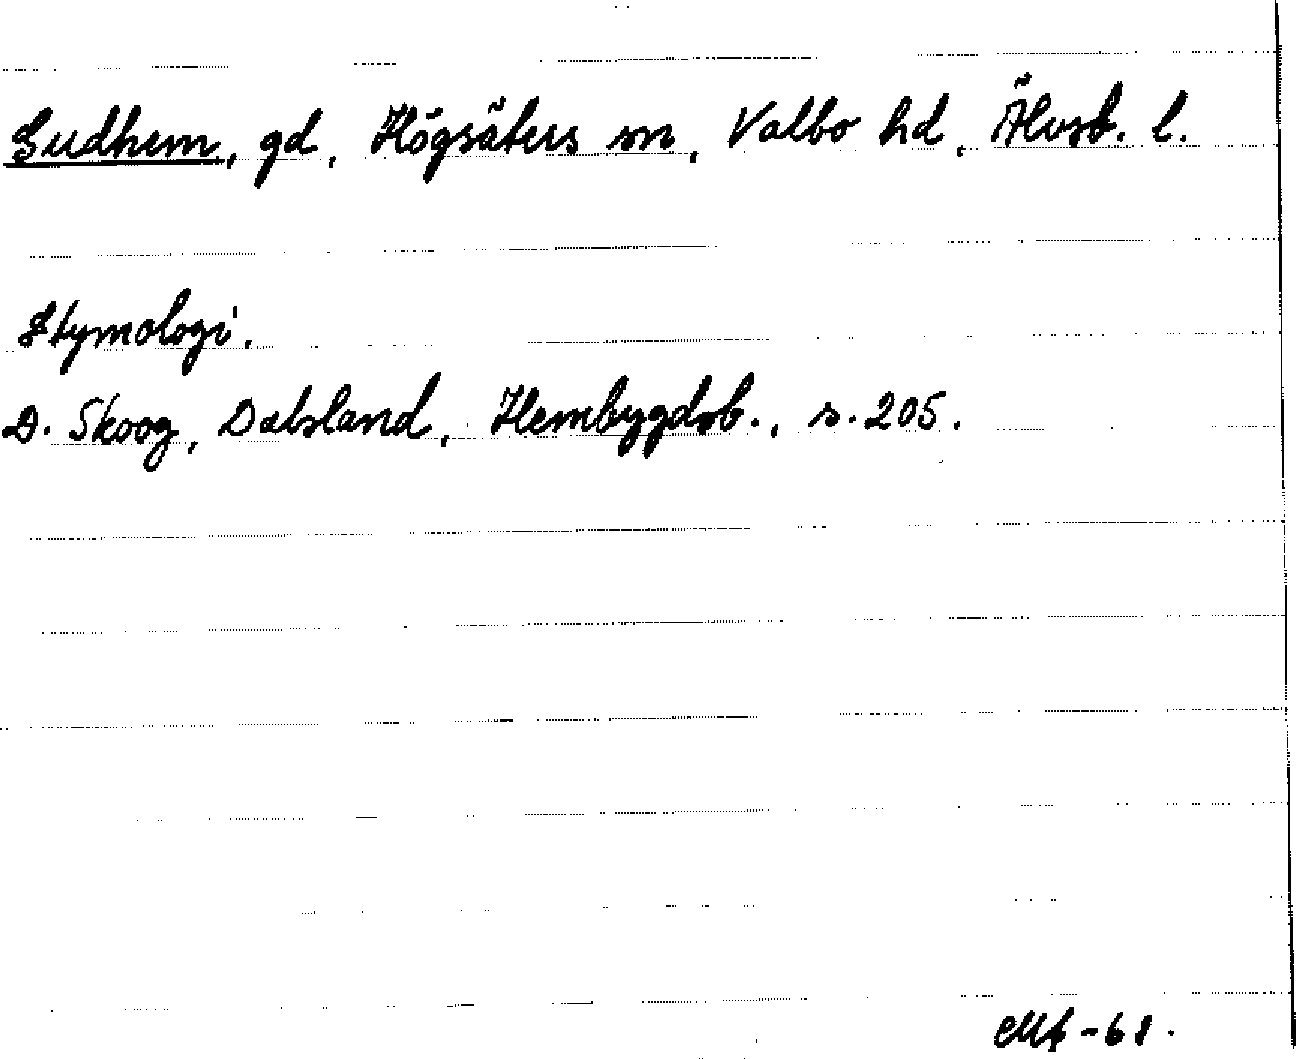 Gudhem, gd, Högsäters sn, Valbo hd, Älvsb. l.
Etymologi.
D. Skoog, Dalsland, Hembygdsb., s. 205.